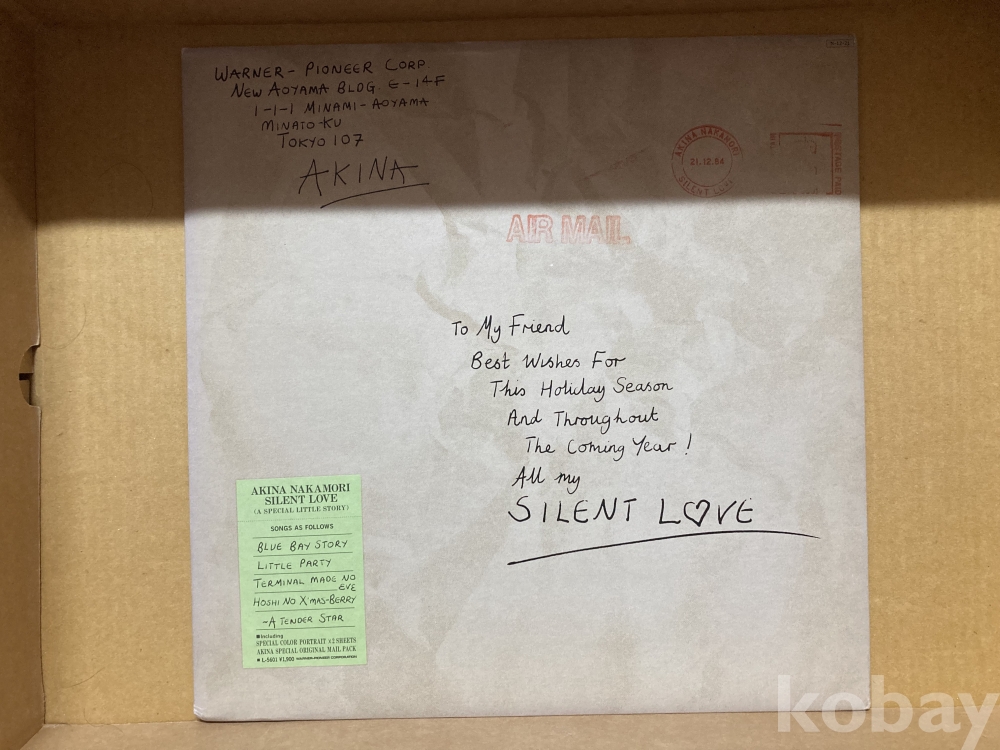 WARNER-PIONEER CORP
NEW AOYAMA BLDG. E-14F
1-1-1 MINAMI-AOYAMA
MINATO-KU
TOKYO 107
AKINA
AKINA NAKAMORI
21.12.84
SILENT
POSTAGE PAID
AIR MAIL
To My Friend
Best Wishes For
This Holiday Season
And Throughout
The Coming Year!
All my
SILENT L♡VE
AKINA NAKAMORI
SILENT LOVE
(A SPECIAL LITTLE STORY)
SONGS AS FOLLOWS
BLUE BAY STORY
LITTLE PARTY
TERMINAL MADE NO
EVE
HOSHI NO X'MAS-BERRY
~A TENDER STAR
■Including
SPECIAL COLOR PORTRAIT ×2 SHEETS
AKINA SPECIAL ORIGINAL MAIL PACK
■L-5601 ¥1,900 WARNER-PIONEER CORPORATION
kobay